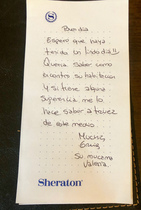 Buen día
Espero que haya
tenido un lindo día!!
Quería saber como
encontro su habitacion
y si tiene alguna
sugerencia me lo
hace saber a travez
de este medio.
Muchas
Gracias
Su mucama
Valeria.
Sheraton